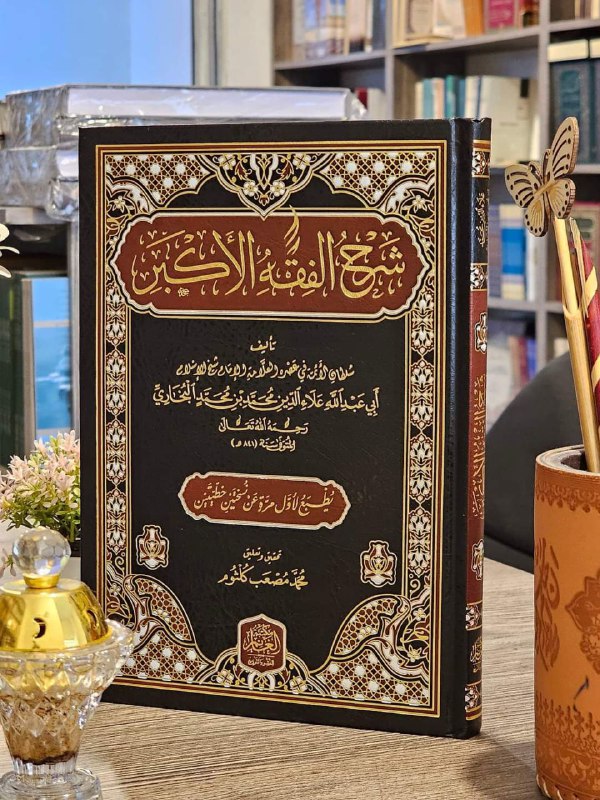 شرح الفقه الأكبر
تأليف
سلطان الأئمة في عصره العلامة الإمام شيخ الإسلام
أبي عبد الله علاء الدين محمد بن محمد البخاري
رحمه الله تعالى
المتوفى سنة (٨٤١ هـ)
يطبع لأول مرة عن نسختين خطيتين
تحقيق وتعليق
محمد مصعب كلثوم